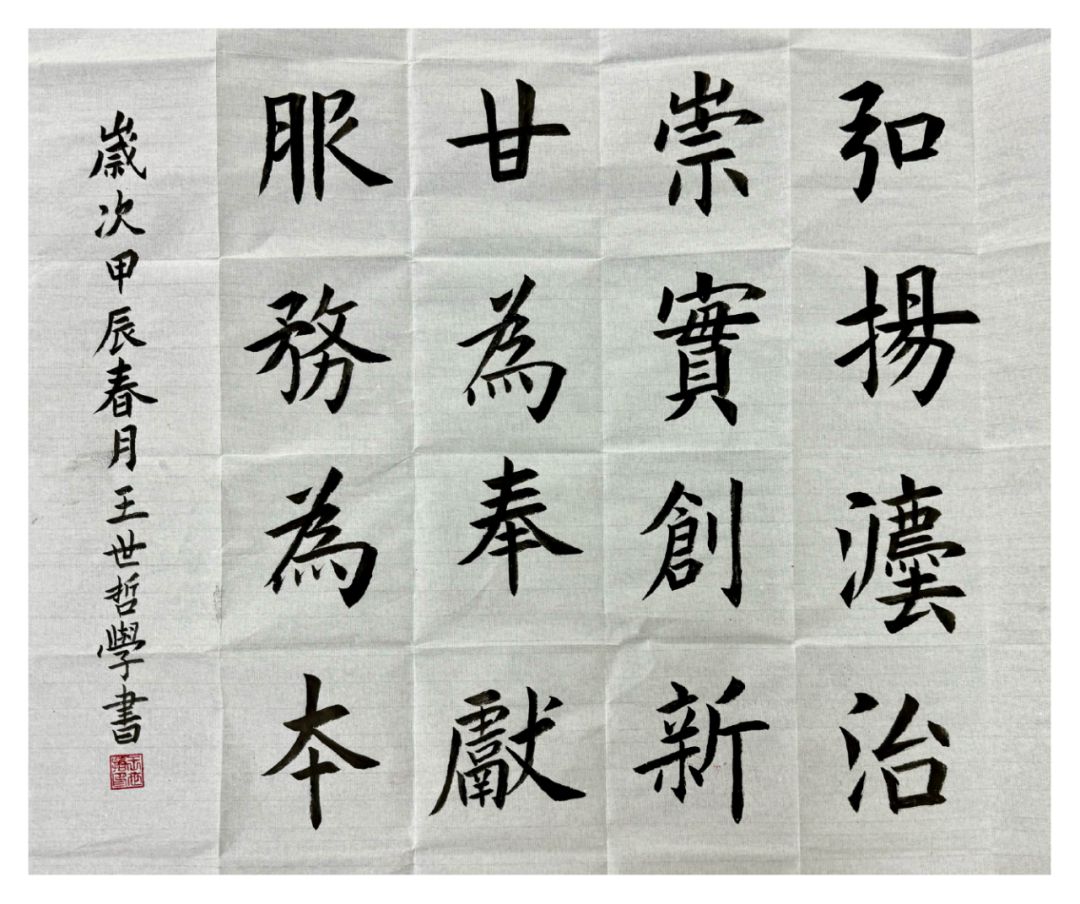 弘揚灋治
崇實創新
甘為奉獻
服務為本
歲次甲辰春月王世哲學書